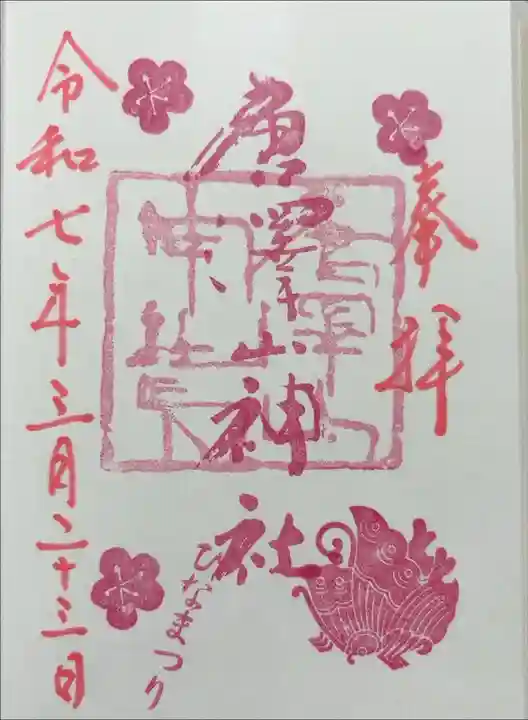 奉拝
唐澤山神社
ひなまつり
令和七年三月二十三日